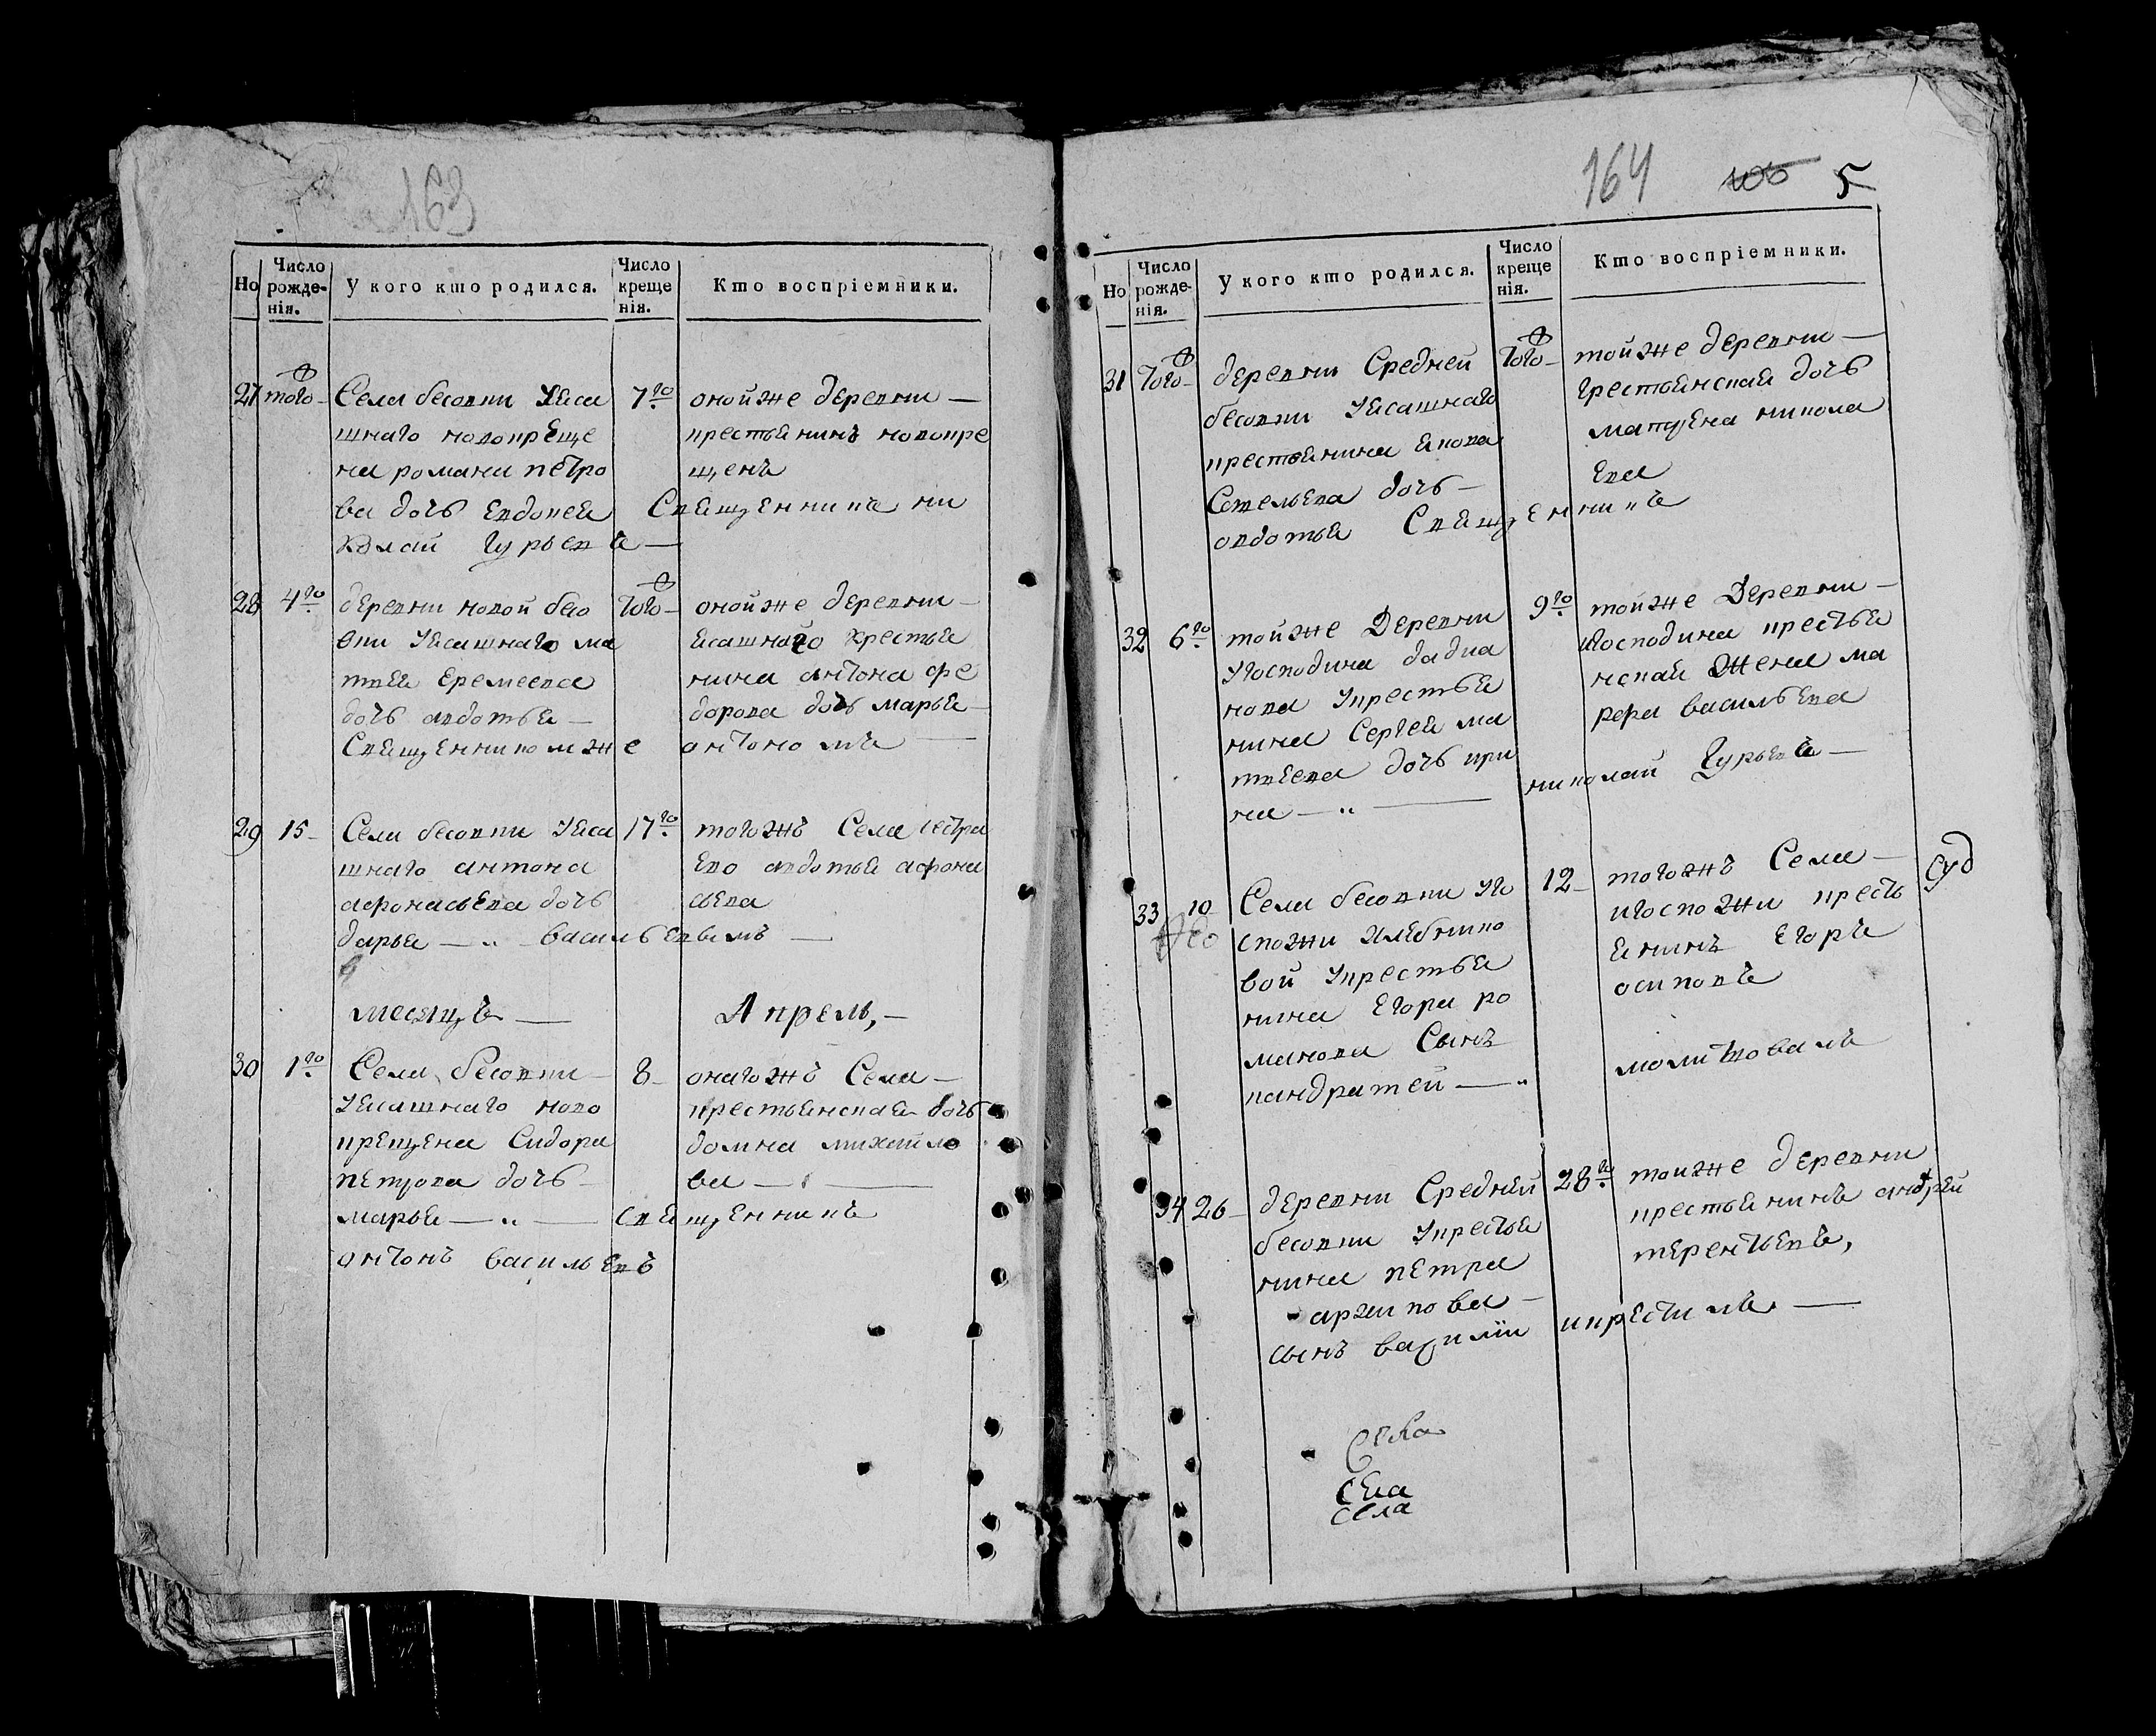 163
Но
Число рожденія.
У кого кто родился.
Число крещенія.
Кто воспріемники.
27 того
Села бесовки Уяса
шнаго новокреще
на романа петро
ва дочь евдокея
7го
оной же деревни
крестьянинъ новокре
щенъ
Священникъ ни
колай Гурьевъ
28 4го
деревни новой бесо
вки Уясашнаго ма
твея еремеева
дочь авдотья
того
оной же деревни
ясашнаго крестья
нина антона фе
дорова дочь марья
Священникомже антономъ
29 15
Села бесовки Уяса
шнаго антона
афонасьева дочь
дарья
17го
тогожъ Села сестра
ево авдотья афона
сьева
васильевымъ
месяцъ Апрель,
30 1го
Села бесовки
Уясашнаго ново
крещена Сидора
петрова дочь
марья
8
оногожъ Села
крестьянская дочь
домна михайло
ва
священникъ
антонъ васильевъ
164 5
Но
Число рожденія.
У кого кто родился.
Число крещенія.
Кто воспріемники.
31 Того
деревни Средней
бесовки Уясашнаго
крестьянина якова
Савельева дочь
авдотья
Того
тойже деревни
крестьянская дочь
матрена никола
ева
Священникъ
32 6го
тойже Деревни
Угосподина давиа
нова Укрестья
нина Сергея ма
твеева дочь ири
на
9го
тойже Деревни
господина крестья
нская Жена ма
рфа васильева
николай Гурьевъ
33 10
Села бесовки Уго
спожи Хлебнико
вой Укрестья
нина Егора ро
манова Сынъ
кандратей
12
тогожъ Села
игоспожи кресть
янинъ Егоръ
осиповъ
молитвовалъ
суд
34 26
деревни Средней
бесовки Укрестья
нина петра
архипова
сынъ василии
28го
тойже деревни
крестьянинъ андрей
терентьевъ,
икрестилъ
Села
Села
села